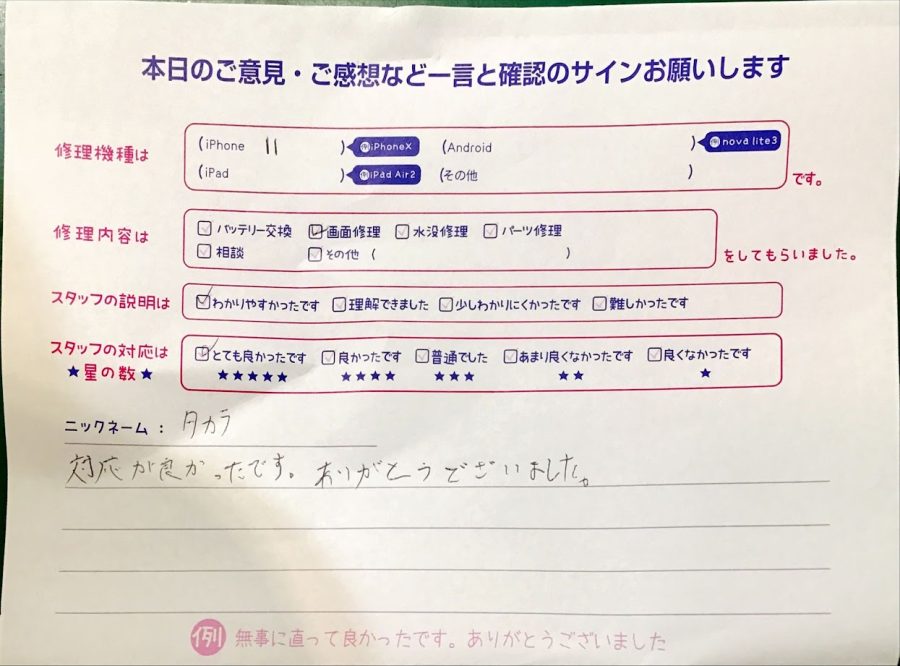 本日のご意見・ご感想など一言と確認のサインお願いします
修理機種は
(iPhone 11 ) 例iPhoneX (Android ) 例nova lite3
(iPad ) 例iPad Air2 (その他 ) です。
修理内容は
バッテリー交換 画面修理 水没修理 パーツ修理
相談 その他 ( ) をしてもらいました。
スタッフの説明は わかりやすかったです 理解できました 少しわかりにくかったです 難しかったです
スタッフの対応は とても良かったです 良かったです 普通でした あまり良くなかったです 良くなかったです
★星の数★ ★★★★★ ★★★★ ★★★ ★★ ★
ニックネーム : タカラ
対応が良かったです。ありがとうございました。
例 無事に直って良かったです。ありがとうございました